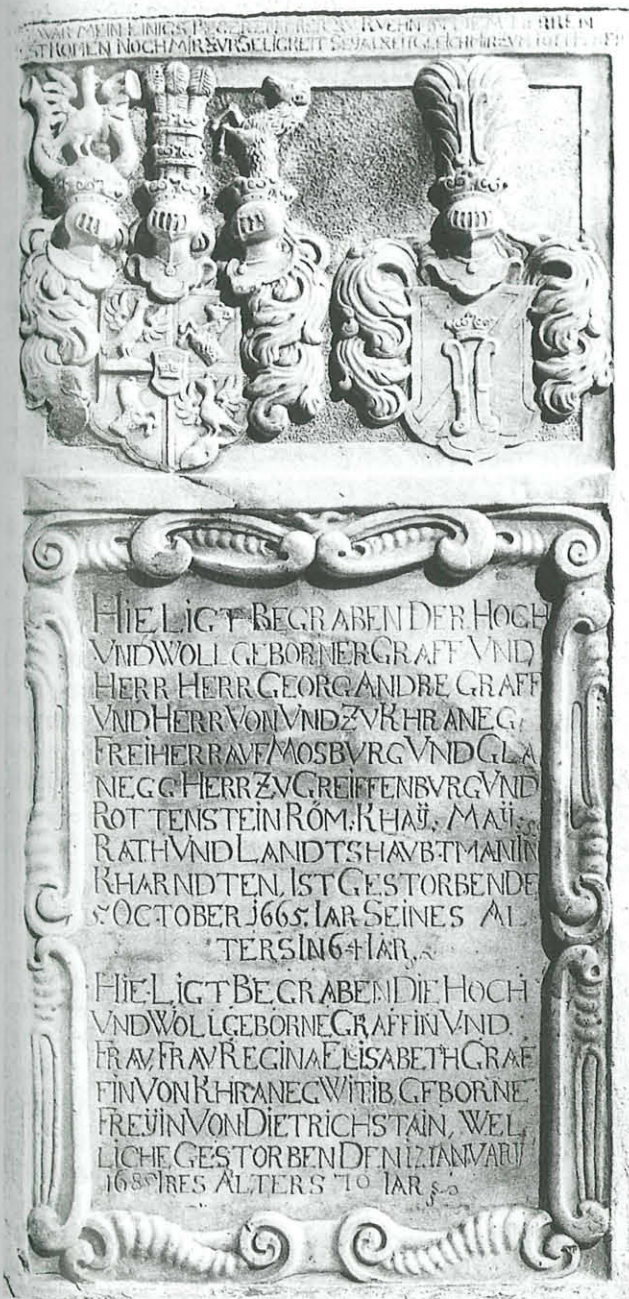 WAR MEIN EINIGS
STROMEN NOCH MIR ZVR SELIGKEIT
HIE LIGT BEGRABEN DER HOCH
VND WOLLGEBORNER GRAFF VND
HERR HERR GEORG ANDRE GRAFF
VND HERR VON VND ZV KHRANEG
FREIHERR AVF MOSBVRG VND GLA
NEGG HERR ZV GREIFFENBVRG VND
ROTTENSTEIN RÖM: KHAŸ: MAŸ:
RATH VND LANDTSHAVBTMAN IN
KHARNDTEN, IST GESTORBEN DE
5 OCTOBER 1665 IAR SEINES AL
TERS IN 64 IAR
HIE LIGT BEGRABEN DIE HOCH
VND WOLLGEBORNE GRAFFIN VND
FRAV, FRAV REGINA ELISABETH GRAF
FIN VON KHRANEG WITIB, GEBORNE
FREŸIN VON DIETRICHSTAIN, WEL
LICHE GESTORBEN DEN 12 IANVARII
IRES ALTERS 70 IAR